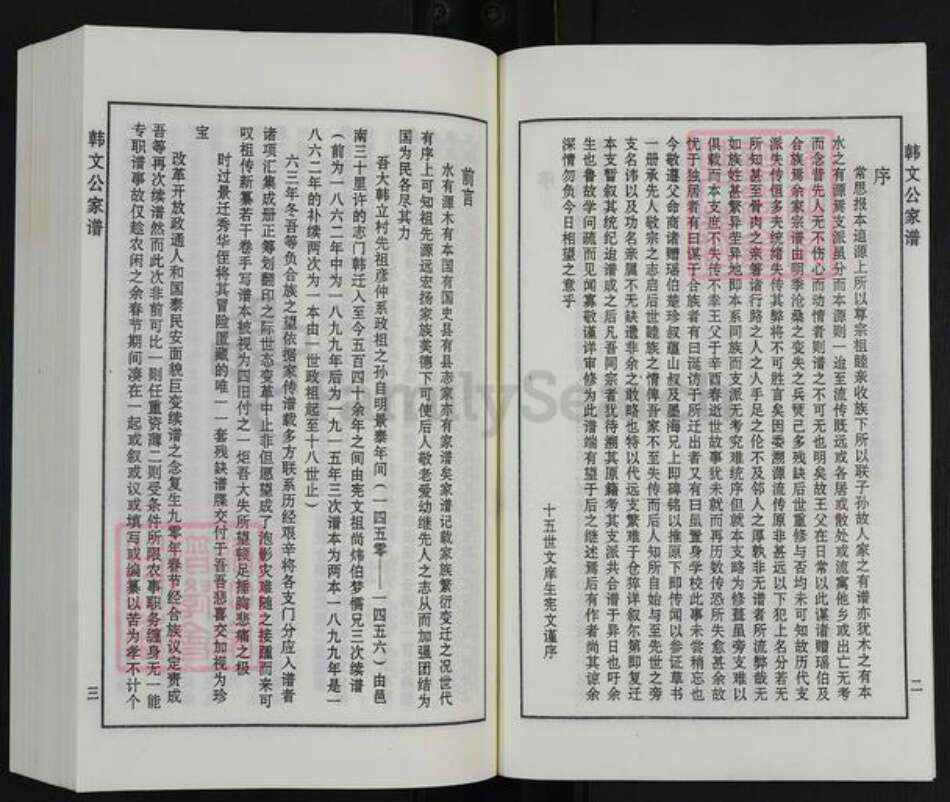 韩文公家谱
二
序
常思报本追源上所以尊宗祖睦亲收族下所以联子孙故人家之有谱亦犹木之有本
水之有源焉支派虽分而本源则一迨至流传既远或各居或散处或流寓他乡或出亡无考
而念昔先人无不伤心而动情者则谱之不可无也明矣故王父在日常以此谋诸赠瑶伯及
合族焉余家宗谱由明季沧桑之变失之兵燹已多残缺后世重修与否均未可知故历代支
派失传恒多夫统绪失传其弊将不可胜言矣因委溯源流传原非甚远以下犯上名分若无
所知甚至骨肉之亲等诸行路之人手足之伦不及邻人之厚孰非无谱者所流弊哉无
如族姓甚繁异茔异地即本系同族而支派无考究难统序但就本支略为修葺虽旁支难以
俱载而本支庶不失传不幸王父于辛酉春逝世故事犹未就而再历数传恐所失愈甚余故
忧于独居者有曰谋于合族者有曰诞访于所迁出者又有曰虽置身学校此事未尝稍忘也
今敬遵父命商诸赠瑶伯楚珍叔蕴山叔及墨海兄上即碑铭以推原下即传闻以参证草书
一册承先人敬宗之志启后世睦族之情俾吾家不至失传而后人知所自始与至先世之旁
支名讳以及功名亲属不无缺遗非余之敢略也特以代远支繁难于仓猝详叙尔第即复迁
本支暂叙其统纪迨谱成之后凡吾同宗者犹待溯其原籍考其支派共合谱于异日也吁余
生也鲁故学问疏而见闻寡敬谨详审修为此谱端有望于后之继述焉后有作者尚其谅余
深情勿负今日相望之意乎
十五世文庠生宪文谨序
前言
水有源木有本国有国史县有县志家亦有家谱矣家谱记载家族繁衍变迁之况世代
有序上可知祖先源远宏扬家族美德下可使后人敬老爱幼继先人之志从而加强团结为
国为民各尽其力
吾大韩立村先祖彦仲系政祖之孙自明景泰年间（一四五零——一四五六）由邑
南三十里许的志门韩迁入至今五百四十余年之间由宪文祖尚炜伯梦儒兄三次续谱
（前为一八六二年中为一八九九年后为一九一五年三次谱本为两本一八九九年是一
八六二年的补续两次为一本由一世政祖起至十八世止）
六三年冬吾等负合族之望依据家传谱载多方联系历经艰辛将各支门分应入谱者
诸项汇集成册正筹划翻印之际世态变革中止非但愿望成了泡影灾难随之接踵而来可
叹祖传新纂若干卷手写谱本被视为四旧付之一炬吾大失所望顿足捶胸悲痛之极
时过景迁秀华侄将其冒险匿藏的唯一一套残缺谱牒交付于吾吾悲喜交加视为珍
宝
改革开放政通人和国泰民安面貌巨变续谱之念复生九零年春节经合族议定责成
吾等再次续谱然而此次非前可比一则任重资薄二则受条件所限农事职务缠身无一能
专职谱事故仅趁农闲之余春节期间凑在一起或叙或议或填写或编纂以苦为孝不计个
韩文公家谱
三
FamilySe